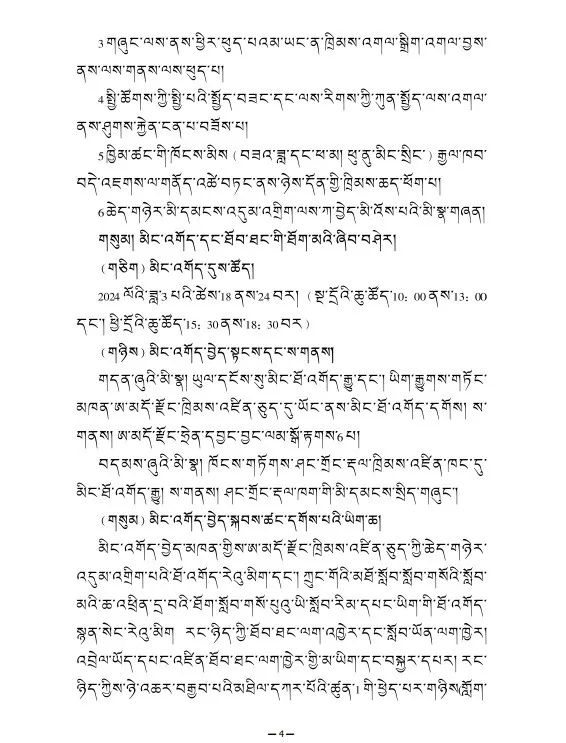 3 གཞུང་ལས་ནས་ཕྱིར་ཕུད་པའམ་ཡང་ན་ཁྲིམས་འགལ་སྒྲིག་འགལ་བྱས་
ནས་ལས་གནས་ལས་ཕུད་པ།
4 སྤྱི་ཚོགས་ཀྱི་སྤྱི་པའི་སྤྱོད་བཟང་དང་ལས་རིགས་ཀྱི་ཀུན་སྤྱོད་ལས་འགལ་
ནས་ཤུགས་རྐྱེན་ངན་པ་བཟོས་པ།
5 ཁྱིམ་ཚང་གི་ཁོངས་མིས (བཟའ་ཟླ་དང་ཕ་མ། ཕུ་ནུ་མིང་སྲིང་) རྒྱལ་ཁབ་
བདེ་འཇགས་ལ་གནོད་འཚེ་བཏང་ནས་ཉེས་དོན་གྱི་ཁྲིམས་ཆད་ཕོག་པ།
6 ཆེད་གཉེར་མི་དམངས་འདུམ་འགྲིག་ལས་ཀ་བྱེད་མི་འོས་པའི་མི་སྣ་གཞན།
གསུམ། མིང་འགོད་དང་ཐོབ་ཐང་གི་ཐོག་མའི་ཞིབ་བཤེར།
(གཅིག) མིང་འགོད་དུས་ཚོད།
2024 ལོའི་ཟླ་3 པའི་ཚེས་18 ནས་24 བར། (སྔ་དྲོའི་ཆུ་ཚོད་10:00 ནས་13:00
དང་། ཕྱི་དྲོའི་ཆུ་ཚོད་15:30 ནས་18:30 བར)
(གཉིས) མིང་འགོད་བྱེད་སྟངས་དང་ས་གནས།
གདན་ཞུའི་མི་སྣ། ཡུལ་དངོས་སུ་མིང་ཐོ་འགོད་རྒྱུ་དང་། ཡིག་རྒྱུགས་གཏོང་
མཁན་ཨ་མདོ་རྫོང་ཁྲིམས་འཛིན་ཅུད་དུ་ཡོང་ནས་མིང་ཐོ་འགོད་དགོས། ས་
གནས། ཨ་མདོ་རྫོང་ཧྲེན་དབྱང་བྱང་ལམ་སྒོ་རྟགས་6 པ།
བདམས་ཞུའི་མི་སྣ། ཁོངས་གཏོགས་ཤང་གྲོང་རྡལ་ཁྲིམས་འཛིན་ཁང་དུ་
མིང་ཐོ་འགོད་རྒྱུ། ས་གནས། ཤང་གྲོང་རྡལ་ཁག་གི་མི་དམངས་སྲིད་གཞུང་།
(གསུམ) མིང་འགོད་བྱེད་སྐབས་ཚང་དགོས་པའི་ཡིག་ཆ།
མིང་འགོད་བྱེད་མཁན་གྱིས་ཨ་མདོ་རྫོང་ཁྲིམས་འཛིན་ཅུད་ཀྱི་ཆེད་གཉེར་
འདུམ་འགྲིག་པའི་ཐོ་འགོད་རེའུ་མིག་དང་། ཀྲུང་གོའི་མཐོ་སློབ་སློབ་གསོའི་སློབ་
མའི་ཆ་འཕྲིན་དྲ་བའི་ཐོག་སློབ་གསོ་པུའུ་ཡི་སློབ་རིམ་དཔང་ཡིག་གི་ཐོ་འགོད་
སྙན་སེང་རེའུ་མིག རང་ཉིད་ཀྱི་ཐོབ་ཐང་ལག་འཁྱེར་དང་སློབ་ཡོན་ལག་ཁྱེར།
འབྲེལ་ཡོད་དཔང་འཛིན་ཐོབ་ཐང་ལག་ཁྱེར་གྱི་མ་ཡིག་དང་བསྐྱར་དཔར། རང་
ཉིད་ཀྱིས་ཉེ་འཆར་བརྒྱབ་པའི་མཐིལ་དཀར་པོའི་ཚུན་1 གི་ཕྱེད་པར་གཉིས(གློག་
— 4 —